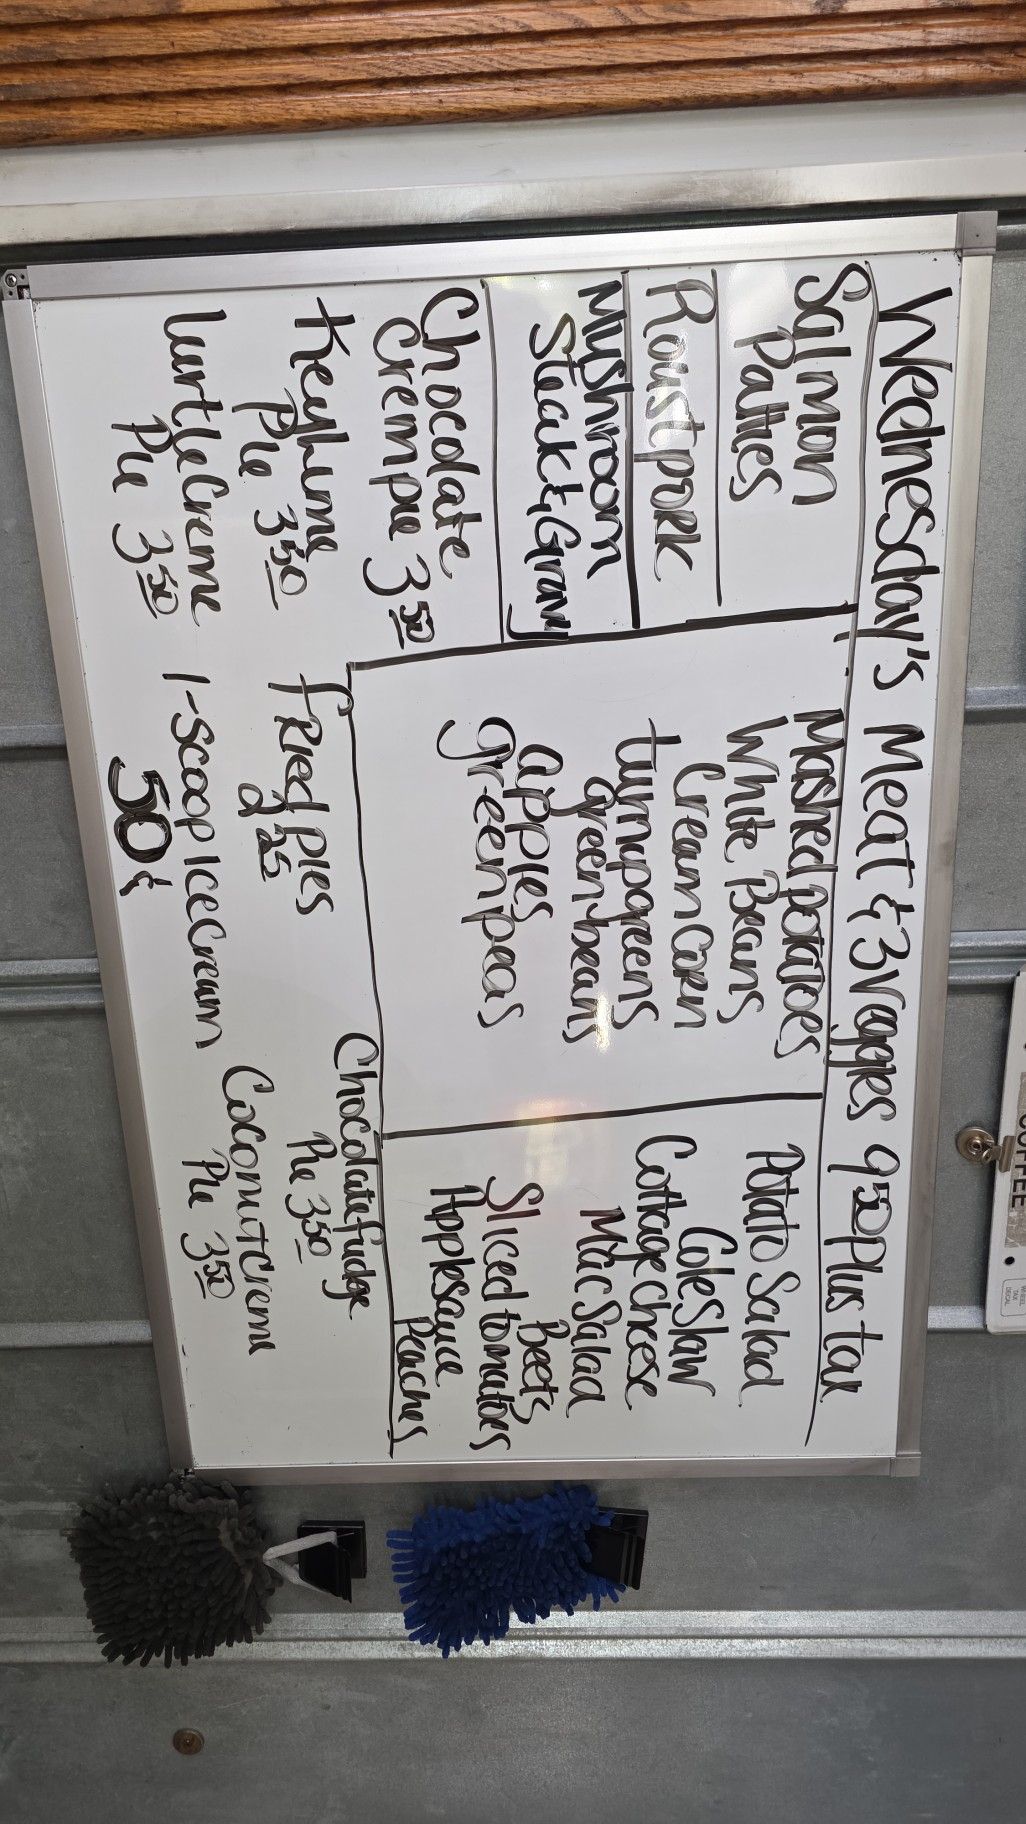 Wednesday's Meat & 3 Veggies 9 50 Plus tax
Salmon
Patties
Roust pork
Mushroom
Steak & Gravy
Mashed potatoes
White Beans
Cream Corn
turnip greens
green beans
apples
green peas
Potato Salad
Cole Slaw
Cottage cheese
Mac Salad
Beets
Sliced tomatoes
Applesauce
Peaches
Chocolate
Crempie 3 50
Keylime
Pie 3 50
Turtle Creme
Pie 3 50
fried pies
2 25
1-Scoop Ice Cream
50¢
Chocolate fudge
Pie 3 50
Coconut Creme
Pie 3 50
COFFEE